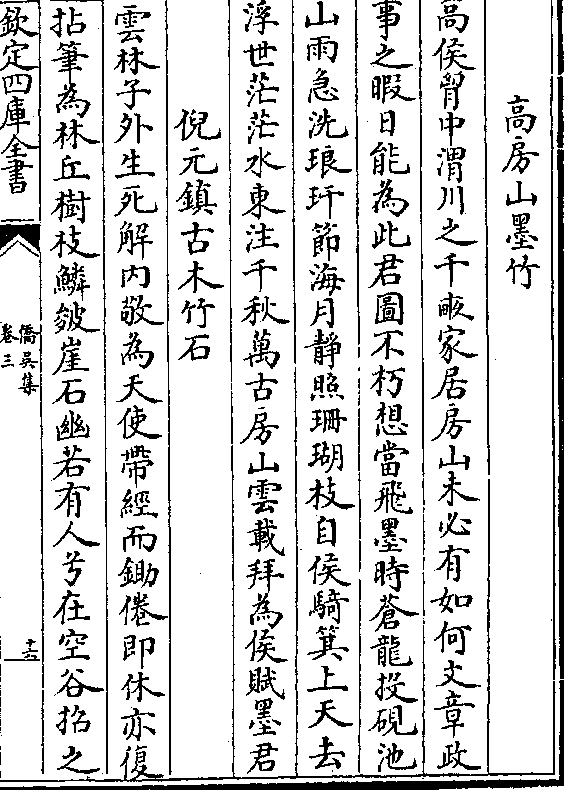 高房山墨竹
高侯胷中渭川之千畝家居房山未必有如何文章政
事之暇日能為此君圖不朽想當飛墨時蒼龍投硯池
山雨急洗琅玕節海月靜照珊瑚枝自侯騎箕上天去
浮世茫茫水東注千秋萬古房山雲載拜為侯賦墨君
倪元鎮古木竹石
雲林子外生死解内敬為天使帶經而鋤倦即休亦復
拈筆為林丘樹枝鱗皴崖石幽若有人兮在空谷招之
欽定四庫全書
僑吳集
卷三
十六